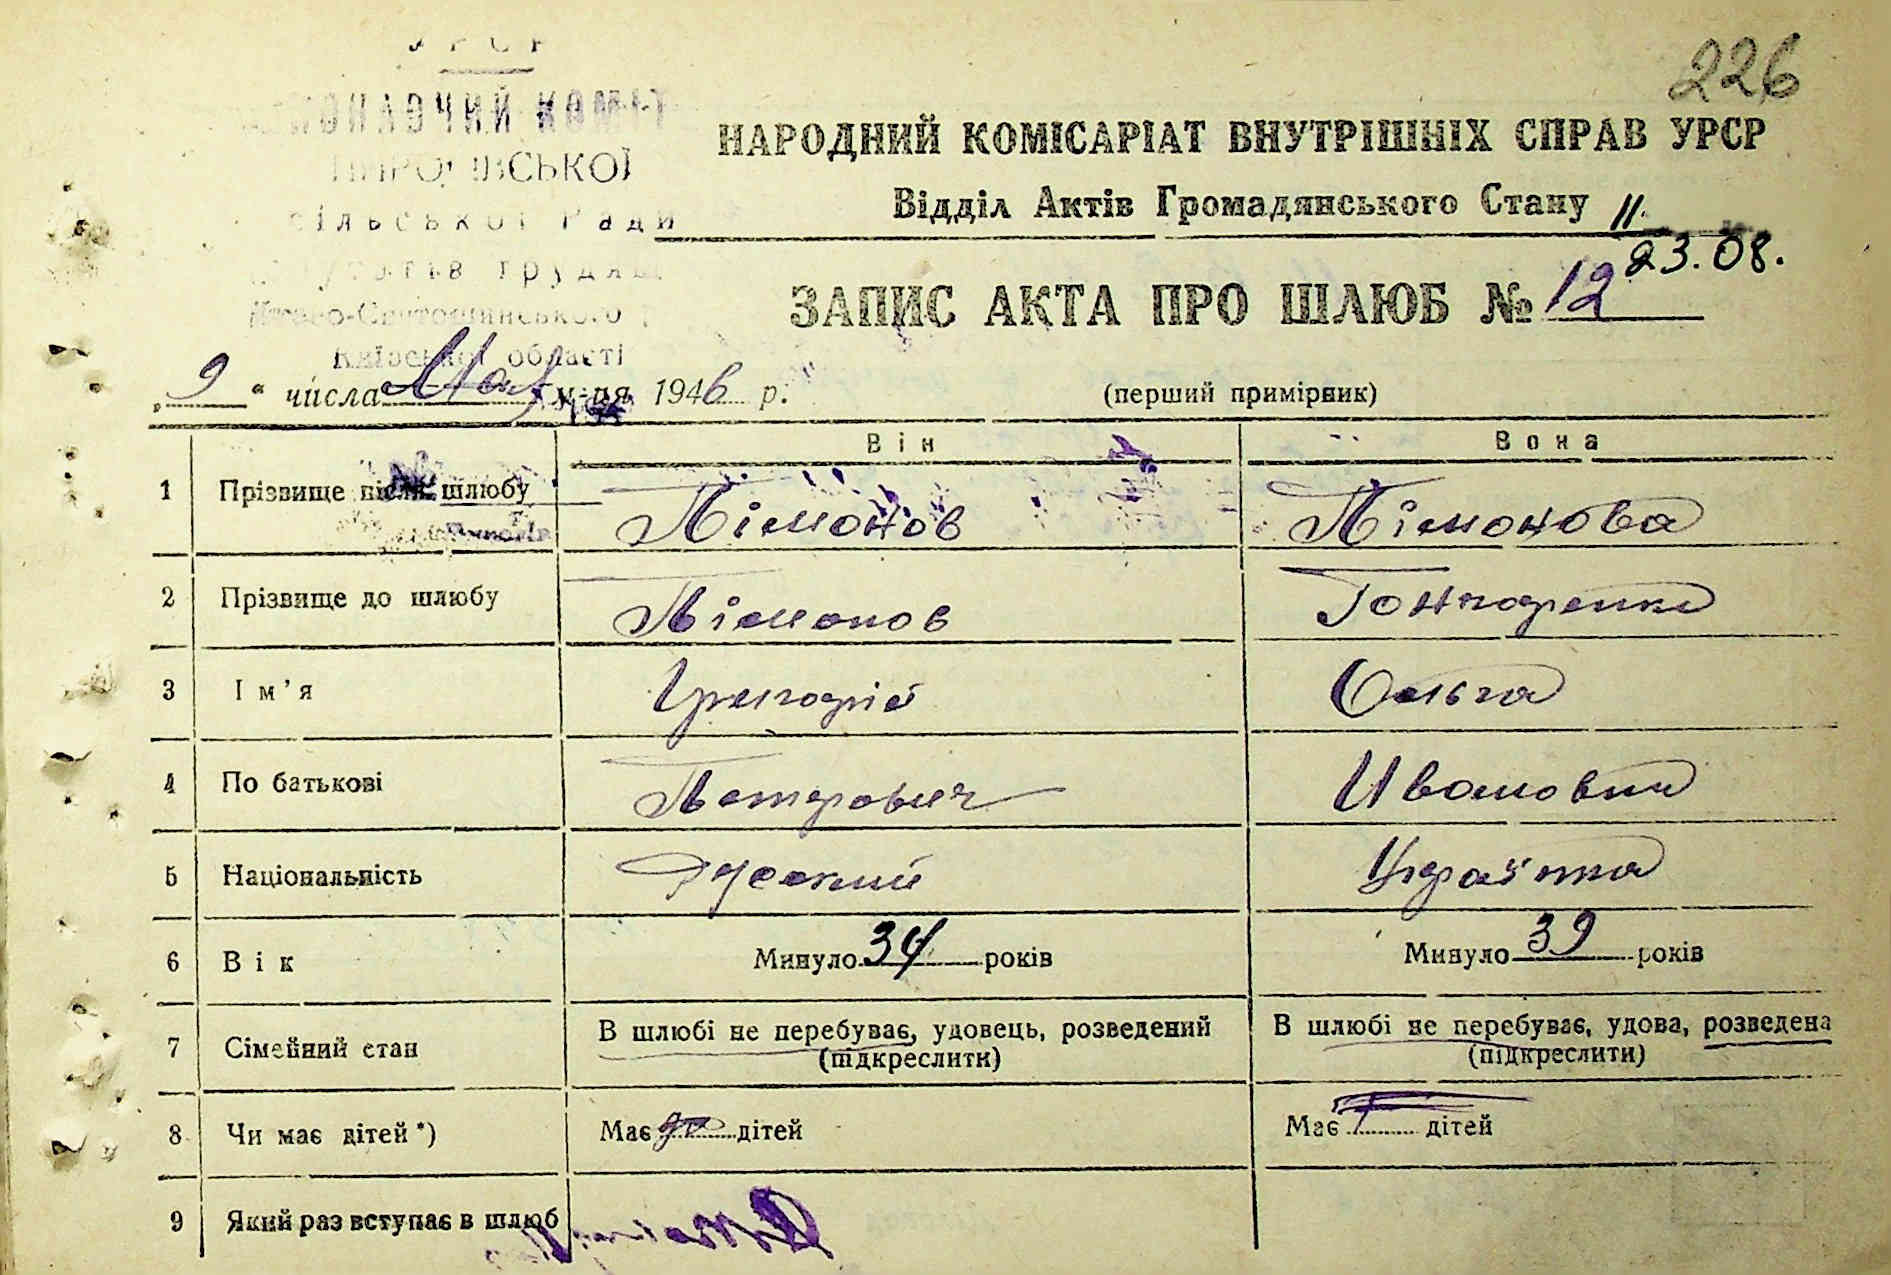 226
УРСР
ВИКОНАВЧИЙ КОМІТЕТ
ПИРОГІВСЬКОЇ
сільської Ради
депутатів трудящих
Києво-Святошинського р
Київської області
НАРОДНИЙ КОМІСАРІАТ ВНУТРІШНІХ СПРАВ УРСР
Відділ Актів Громадянського Стану
11.
23.08.
ЗАПИС АКТА ПРО ШЛЮБ № 12
„ 9 “ числа Мая м-ця 1946 р. (перший примірник)
Він Вона
1 Прізвище після шлюбу Пімонов Пімонова
2 Прізвище до шлюбу Пімонов Гончаренко
3 Ім’я Григорій Ольга
4 По батькові Петрович Ивановна
5 Національність Руский Украінка
6 Вік Минуло 34 років Минуло 39 років
7 Сімейний стан В шлюбі не перебуває, удовець, розведений (підкреслити) В шлюбі не перебуває, удова, розведена (підкреслити)
8 Чи має дітей*) Має дітей Має 1 дітей
9 Який раз вступає в шлюб